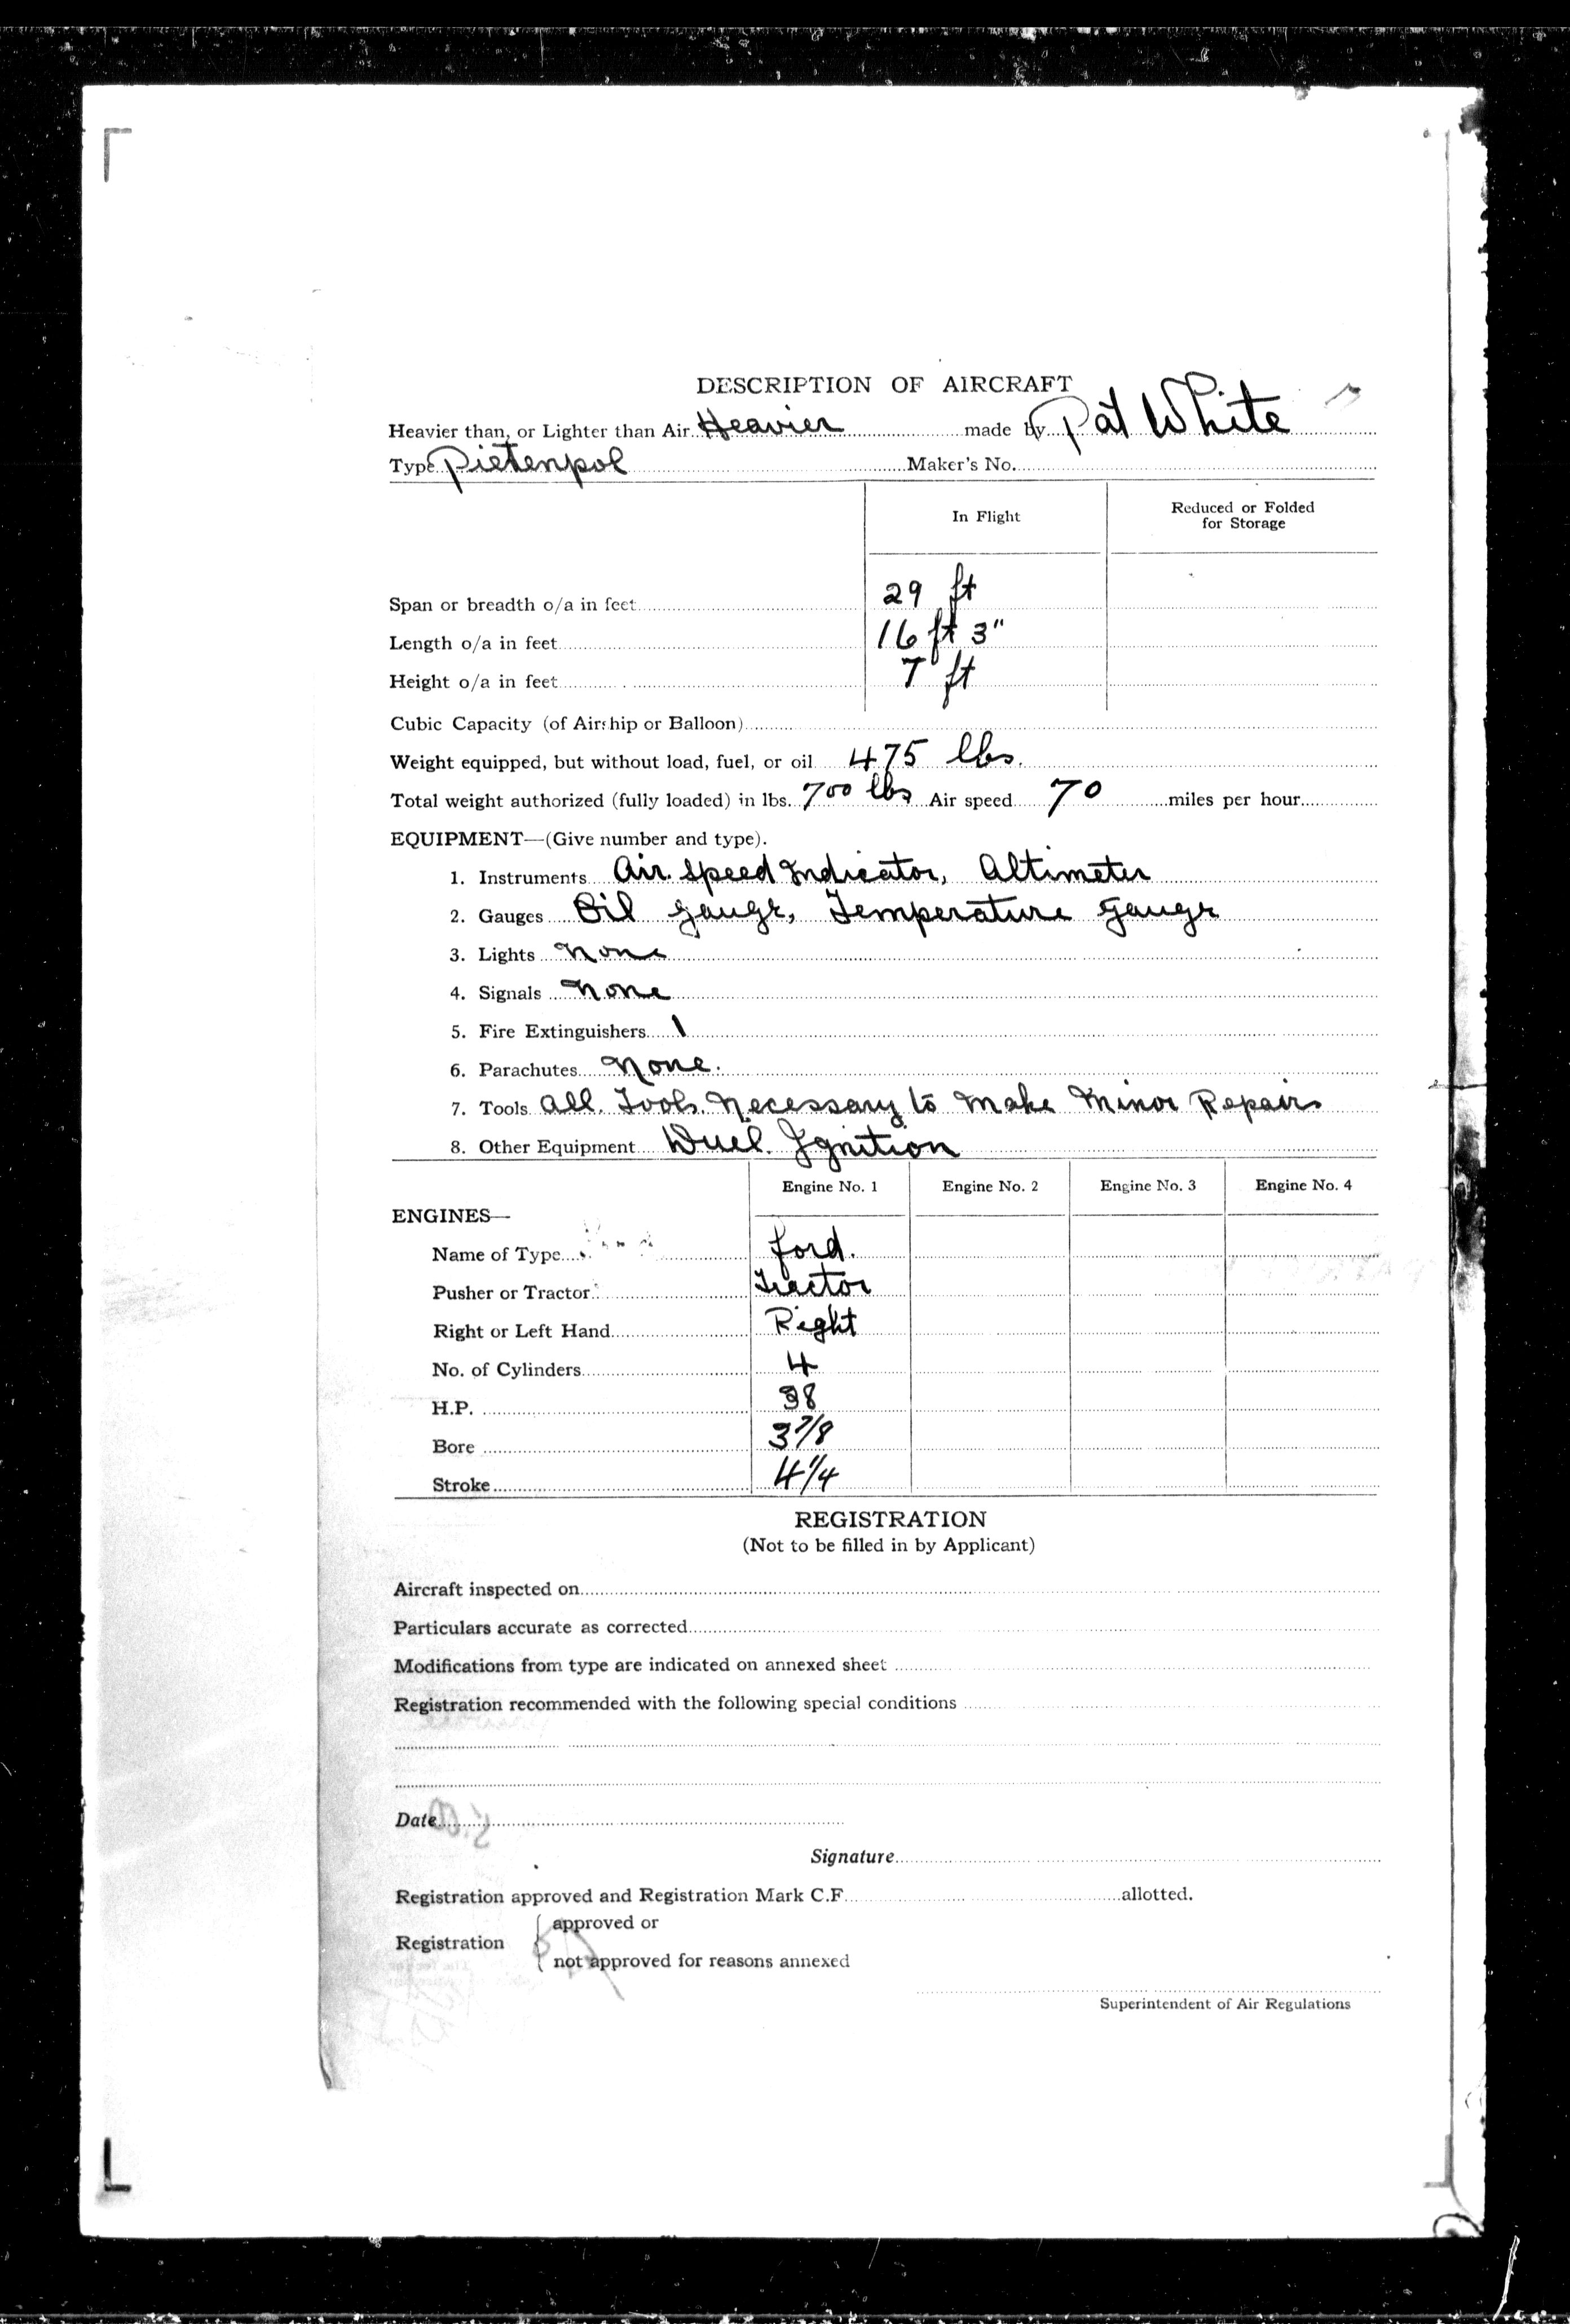 DESCRIPTION OF AIRCRAFT
Heavier than, or Lighter than Air Heavier made by Pat White
Type Pietenpol Maker's No.
In Flight Reduced or Folded for Storage
Span or breadth o/a in feet 29 ft
Length o/a in feet 16 ft 3"
Height o/a in feet 7 ft
Cubic Capacity (of Airship or Balloon)
Weight equipped, but without load, fuel, or oil 475 lbs.
Total weight authorized (fully loaded) in lbs. 700 lbs Air speed 70 miles per hour
EQUIPMENT—(Give number and type).
1. Instruments Air Speed Indicator, Altimeter
2. Gauges Oil Gauge, Temperature Gauge
3. Lights None
4. Signals None
5. Fire Extinguishers 1
6. Parachutes None.
7. Tools All Tools Necessary to Make Minor Repairs
8. Other Equipment Duel Ignition
Engine No. 1 Engine No. 2 Engine No. 3 Engine No. 4
ENGINES—
Name of Type Ford.
Pusher or Tractor Tractor
Right or Left Hand Right
No. of Cylinders 4
H.P. 38
Bore 3 7/8
Stroke 4 1/4
REGISTRATION
(Not to be filled in by Applicant)
Aircraft inspected on
Particulars accurate as corrected
Modifications from type are indicated on annexed sheet
Registration recommended with the following special conditions
Date
Signature
Registration approved and Registration Mark C.F. allotted.
Registration { approved or
not approved for reasons annexed
Superintendent of Air Regulations